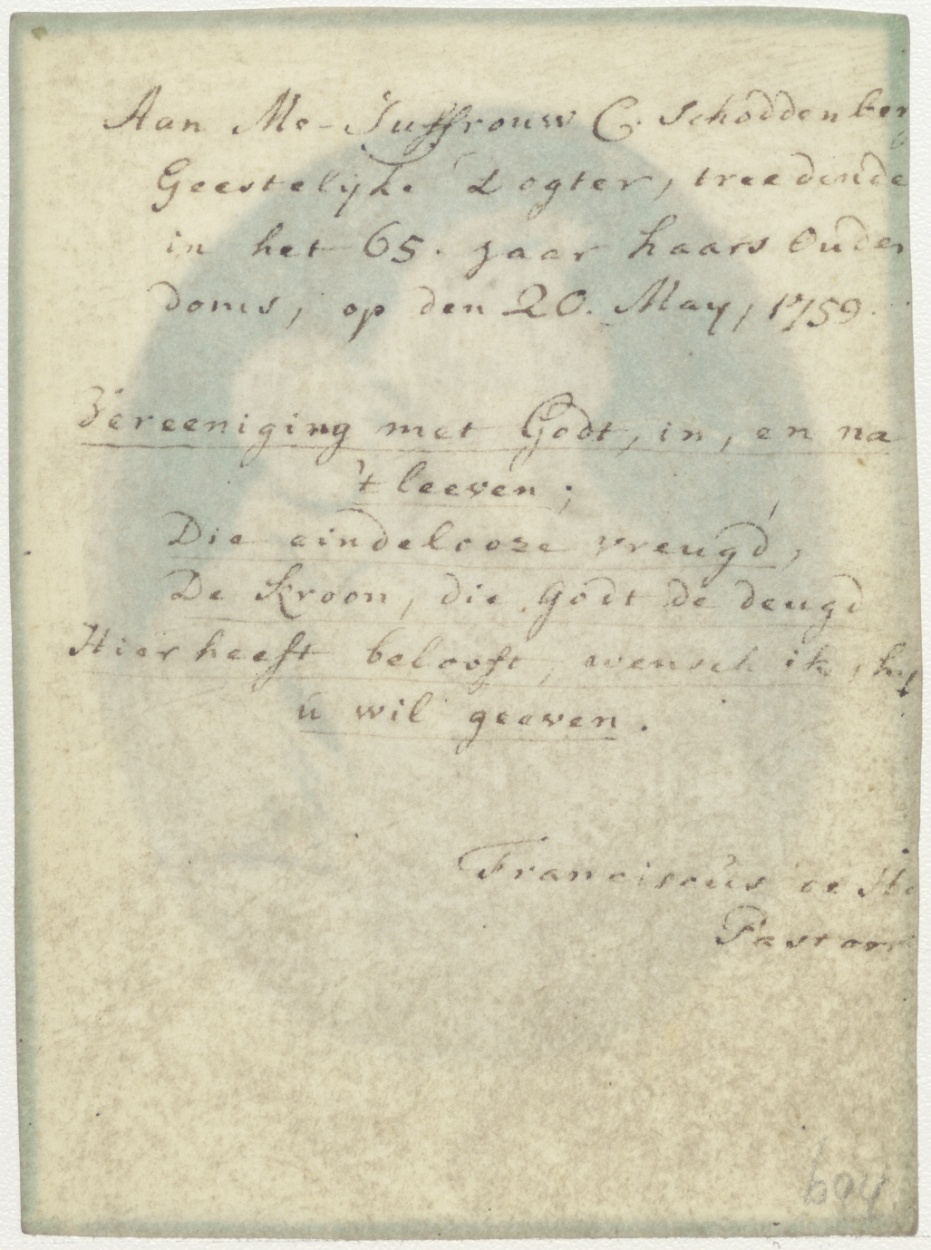 Aan Me-Juffrouw C. Schoddenber
Geestelijke Dogter, treedende
in het 65. jaar haars Ouder
doms, op den 20. May, 1759.
Vereeniging met Godt, in, en na
't leeven;
Die eindelooze vreugd,
De Kroon, die Godt de deugd
Hier heeft belooft, wensch ik, hy
u wil geeven.
Franciscus de
Pastor
694